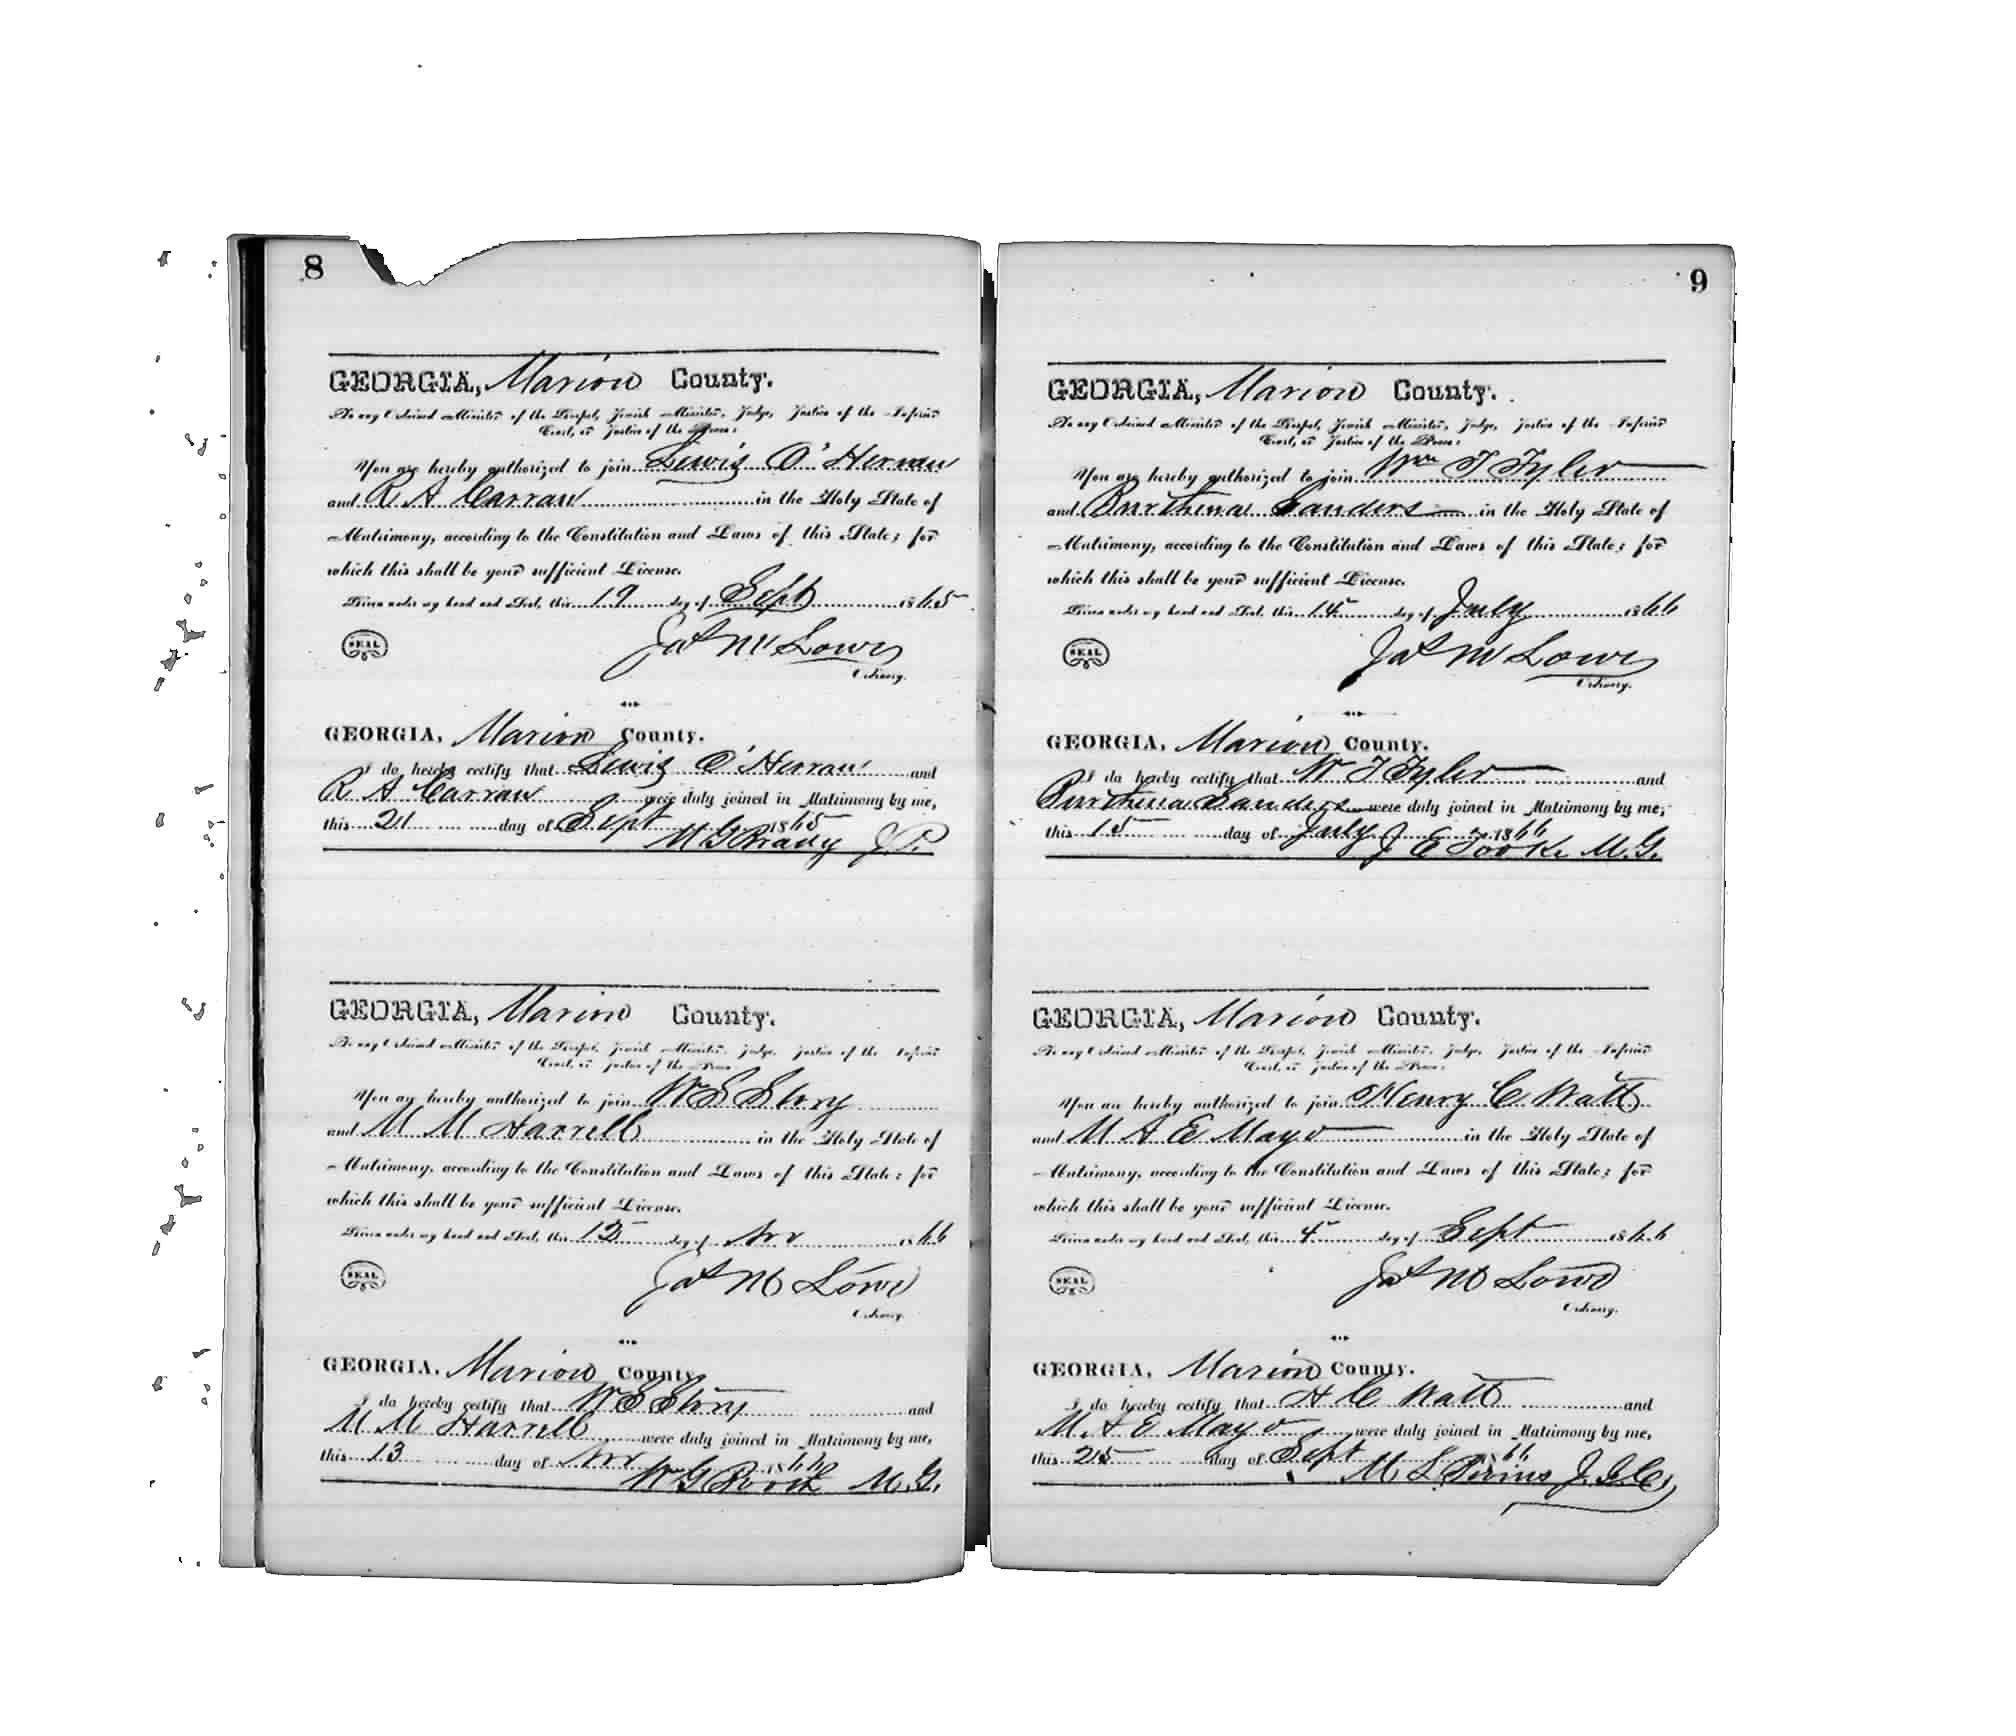 8
GEORGIA, Marion County.
To any Ordained Minister of the Gospel, Jewish Minister, Judge, Justice of the Inferior
Court, or Justice of the Peace:
You are hereby authorized to join Lewis O'Herran
and R A Carraw in the Holy State of
Matrimony, according to the Constitution and Laws of this State; for
which this shall be your sufficient License.
Given under my hand and Seal, this 19 day of Sept 1865
SEAL Jas M Lowe
Ordinary.
GEORGIA, Marion County.
I do hereby certify that Lewis O'Herran and
R A Carraw were duly joined in Matrimony by me,
this 21 day of Sept 1865
M G Brady J.P.
GEORGIA, Marion County.
To any Ordained Minister of the Gospel, Jewish Minister, Judge, Justice of the Inferior
Court, or Justice of the Peace:
You are hereby authorized to join W S Story
and M M Harrell in the Holy State of
Matrimony, according to the Constitution and Laws of this State; for
which this shall be your sufficient License.
Given under my hand and Seal, this 13 day of Nov 1866
SEAL Jas M Lowe
Ordinary.
GEORGIA, Marion County.
I do hereby certify that W S Story and
M M Harrell were duly joined in Matrimony by me,
this 13 day of Nov 1866
W G Booth M.G.
9
GEORGIA, Marion County.
To any Ordained Minister of the Gospel, Jewish Minister, Judge, Justice of the Inferior
Court, or Justice of the Peace:
You are hereby authorized to join Wm T Tyler
and Burthena Sanders in the Holy State of
Matrimony, according to the Constitution and Laws of this State; for
which this shall be your sufficient License.
Given under my hand and Seal, this 14 day of July 1866
SEAL Jas M Lowe
Ordinary.
GEORGIA, Marion County.
I do hereby certify that W T Tyler and
Burthena Sanders were duly joined in Matrimony by me,
this 15 day of July 1866
J E Tooke M.G.
GEORGIA, Marion County.
To any Ordained Minister of the Gospel, Jewish Minister, Judge, Justice of the Inferior
Court, or Justice of the Peace:
You are hereby authorized to join Henry C Watt
and M A E Mayo in the Holy State of
Matrimony, according to the Constitution and Laws of this State; for
which this shall be your sufficient License.
Given under my hand and Seal, this 4 day of Sept 1866
SEAL Jas M Lowe
Ordinary.
GEORGIA, Marion County.
I do hereby certify that H C Watt and
M A E Mayo were duly joined in Matrimony by me,
this 25 day of Sept 1866
M L J.I.C.